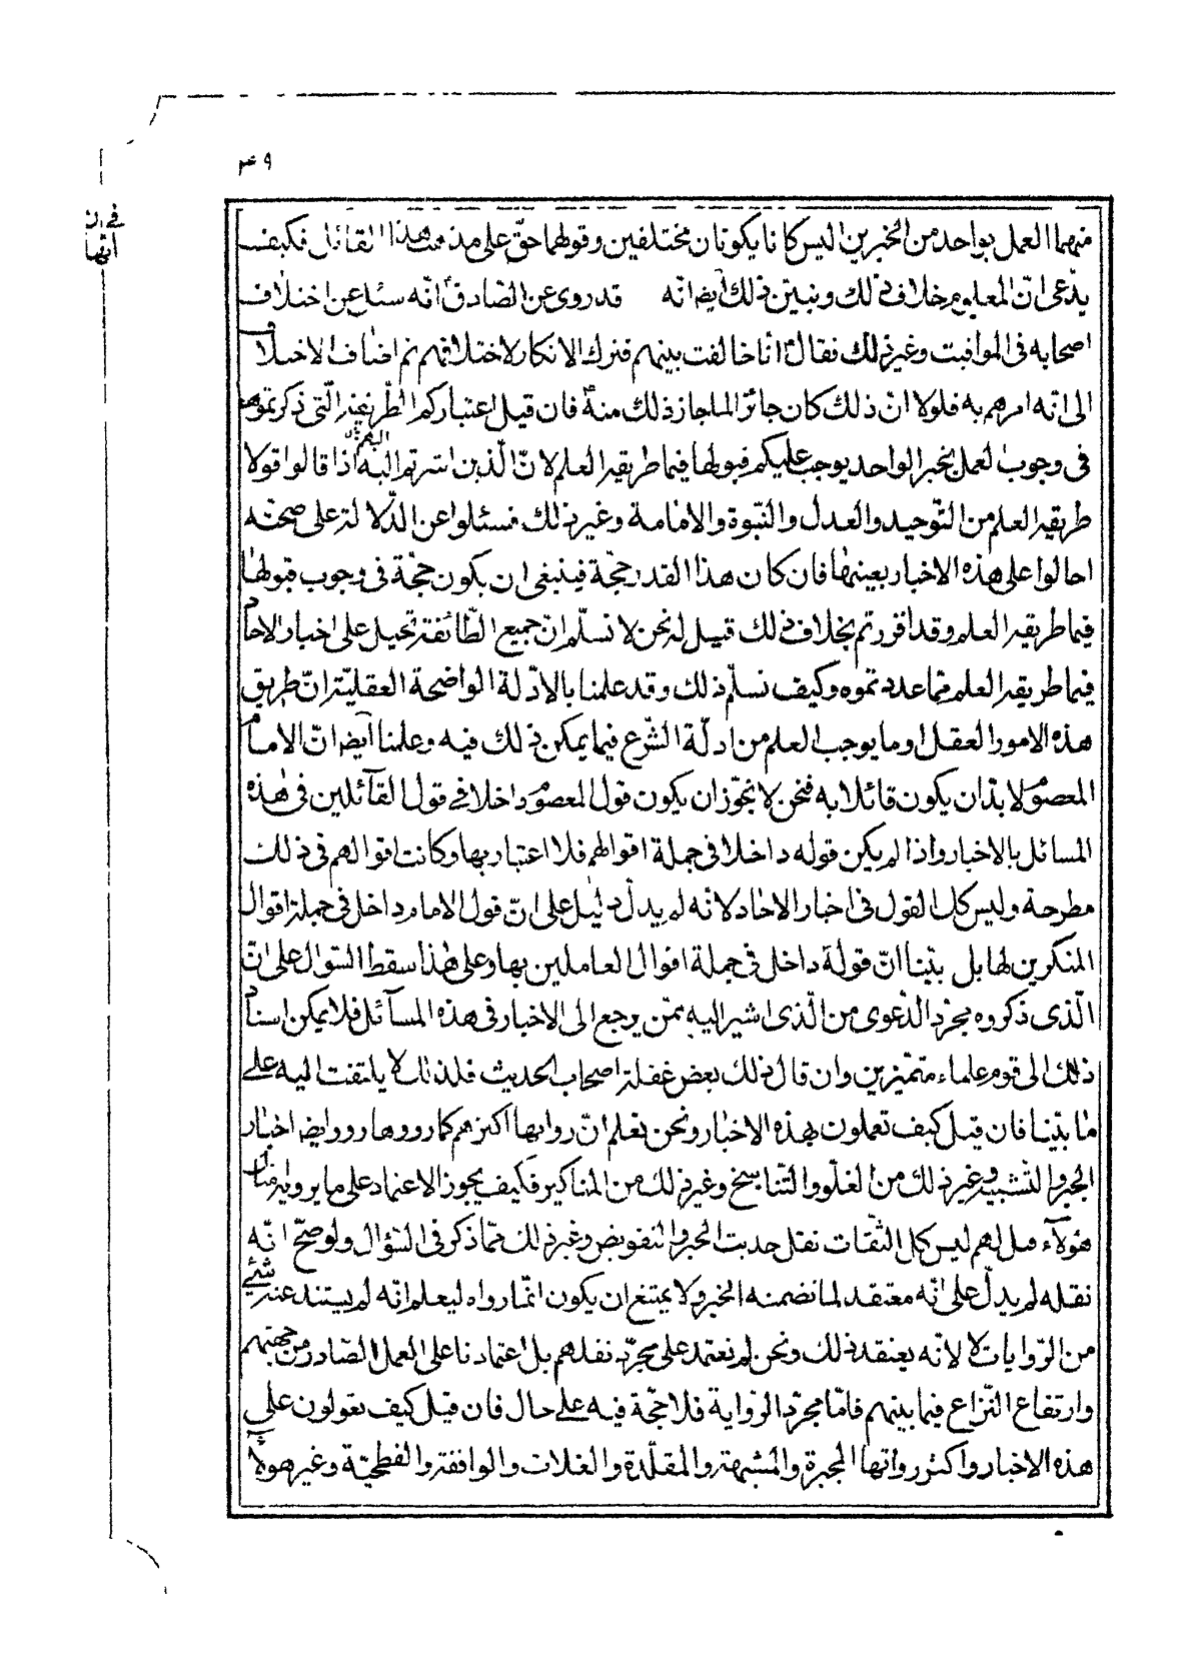 ٤٩
في ان
انها
منهما العمل بواحد من الخبرين اليس كانا يكونان مختلفين وقولهما حق على مذهب هذا القائل فكيف
يدّعى انّ المعلوم خلاف ذلك ونبين ذلك ايضا انه قد روى عن الصّادق ع انّه سئل عن اختلاف
اصحابه فى المواقيت وغير ذلك فقال ع انا خالفت بينهم فترك الانكار لاختلافهم ثم اضاف الاختلاف
الى انّه امرهم به فلولا انّ ذلك كان جائز الما جاز ذلك منه ع فان قيل اعتباركم الطّريقة الّتى ذكرتموها
فى وجوب العمل بخبر الواحد يوجب عليكم قبولها فيما طريقه العلم لانّ الّذين اشرتم اليهم اذا قالوا قولا
طريقه العلم من التّوحيد والعدل والنّبوة والامامة وغير ذلك فسئلوا عن الدّلالة على صحّته
احالوا على هذه الاخبار بعينها فان كان هذا القدر حجّة فينبغى ان يكون حجّة فى وجوب قبولها
فيما طريقه العلم وقد اقررتم بخلاف ذلك قيل له نحن لا نسلّم انّ جميع الطّائفة تحيل على اخبار الاحاد
فيما طريقه العلم ممّا عددتموه وكيف نسلّم ذلك وقد علمنا بالادّلة الواضحة العقليّة انّ طريق
هذه الامور العقل او ما يوجب العلم من ادلّة الشّرع فيما يمكن ذلك فيه وعلمنا ايضا انّ الامام
المعصوم لا بدّ ان يكون قائلا به فنحن لا نجوّز ان يكون قول المعصوم داخلا فى قول القآئلين فى هذه
المسائل بالاخبار واذا لم يكن قوله داخلا فى جملة اقوالهم فلا اعتبار بها وكانت اقوالهم فى ذلك
مطرحة وليس كل القول فى اخبار الاحاد لانّه لم يدلّ دليل على انّ قول الامام داخل فى جملة اقوال
المنكرين لها بل بيّنا انّ قوله داخل فى جملة اقوال العاملين بها وعلى هذا سقط السّؤال على انّ
الّذى ذكروه مجرّد الدّعوى من الّذى اشير اليه ممّن يرجع الى الاخبار فى هذه المسآئل فلا يمكن اسناد
ذلك الى قوم علماء متميّزين وان قال ذلك بعض غفلة اصحاب الحديث فلذلك لا يلتفت اليه على
ما بيّنا فان قيل كيف تعملون بهذه الاخبار ونحن نعلم انّ رواتها اكثرهم كما رووها رووا ايضا اخبار
الجبر والتّشبيه وغير ذلك من الغلّو والتّناسخ وغير ذلك من المناكير فكيف يجوز الاعتماد على ما يرويه امثال
هؤلآء قيل لهم ليس كل الثّقات نقل حديث الجبر والتفويض وغير ذلك ممّا ذكر فى السّؤال ولو صحّ انّه
نقله لم يدلّ على انّه معتقد لما تضمنه الخبر ولا يمتنع ان يكون انّما رواه ليعلم انّه لم يستند عنه شئ
من الرّوايات لا لانّه يعتقد ذلك ونحن لم نعتمد على مجرّد نقلهم بل اعتمادنا على العمل الصّادر من جهتهم
وارتفاع النّزاع فيما بينهم فامّا مجرّد الرّواية فلا حجّة فيه على حال فان قيل كيف تعولون على
هذه الاخبار واكثر رواتها المجبرة والمشبهة والمقلّدة والغلات والواقفة والفطحيّة وغير هؤلآء